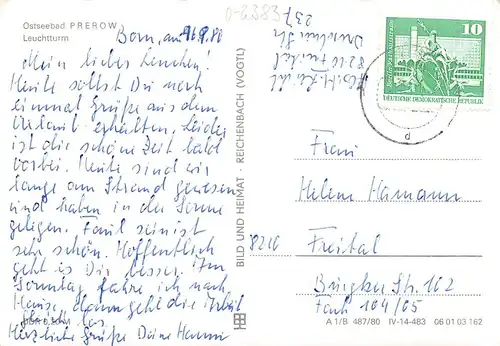 Ostseebad PREROW
Leuchtturm
Born, am
Mein liebes Lenchen!
Heute sollst Du noch
einmal Grüße aus dem
Urlaub erhalten. Leider
ist die schöne Zeit bald
vorbei. Heute sind wir
lange am Strand gewesen
und haben in der Sonne
gelegen. Faul sein ist
sehr schön. Hoffentlich
geht es Dir besser. Am
Sonntag fahre ich nach
Hause, dann geht die Arbeit
los
Herzliche Grüße Deine Hanni
BILD UND HEIMAT · REICHENBACH (VOGTL)
237
8210 Freital
10
DEUTSCHE DEMOKRATISCHE REPUBLIK
Frau
Helene Hamann
8210 Freital
Burgker Str. 102
Fach 104/05
A 1/B 487/80 IV-14-483 06 01 03 162